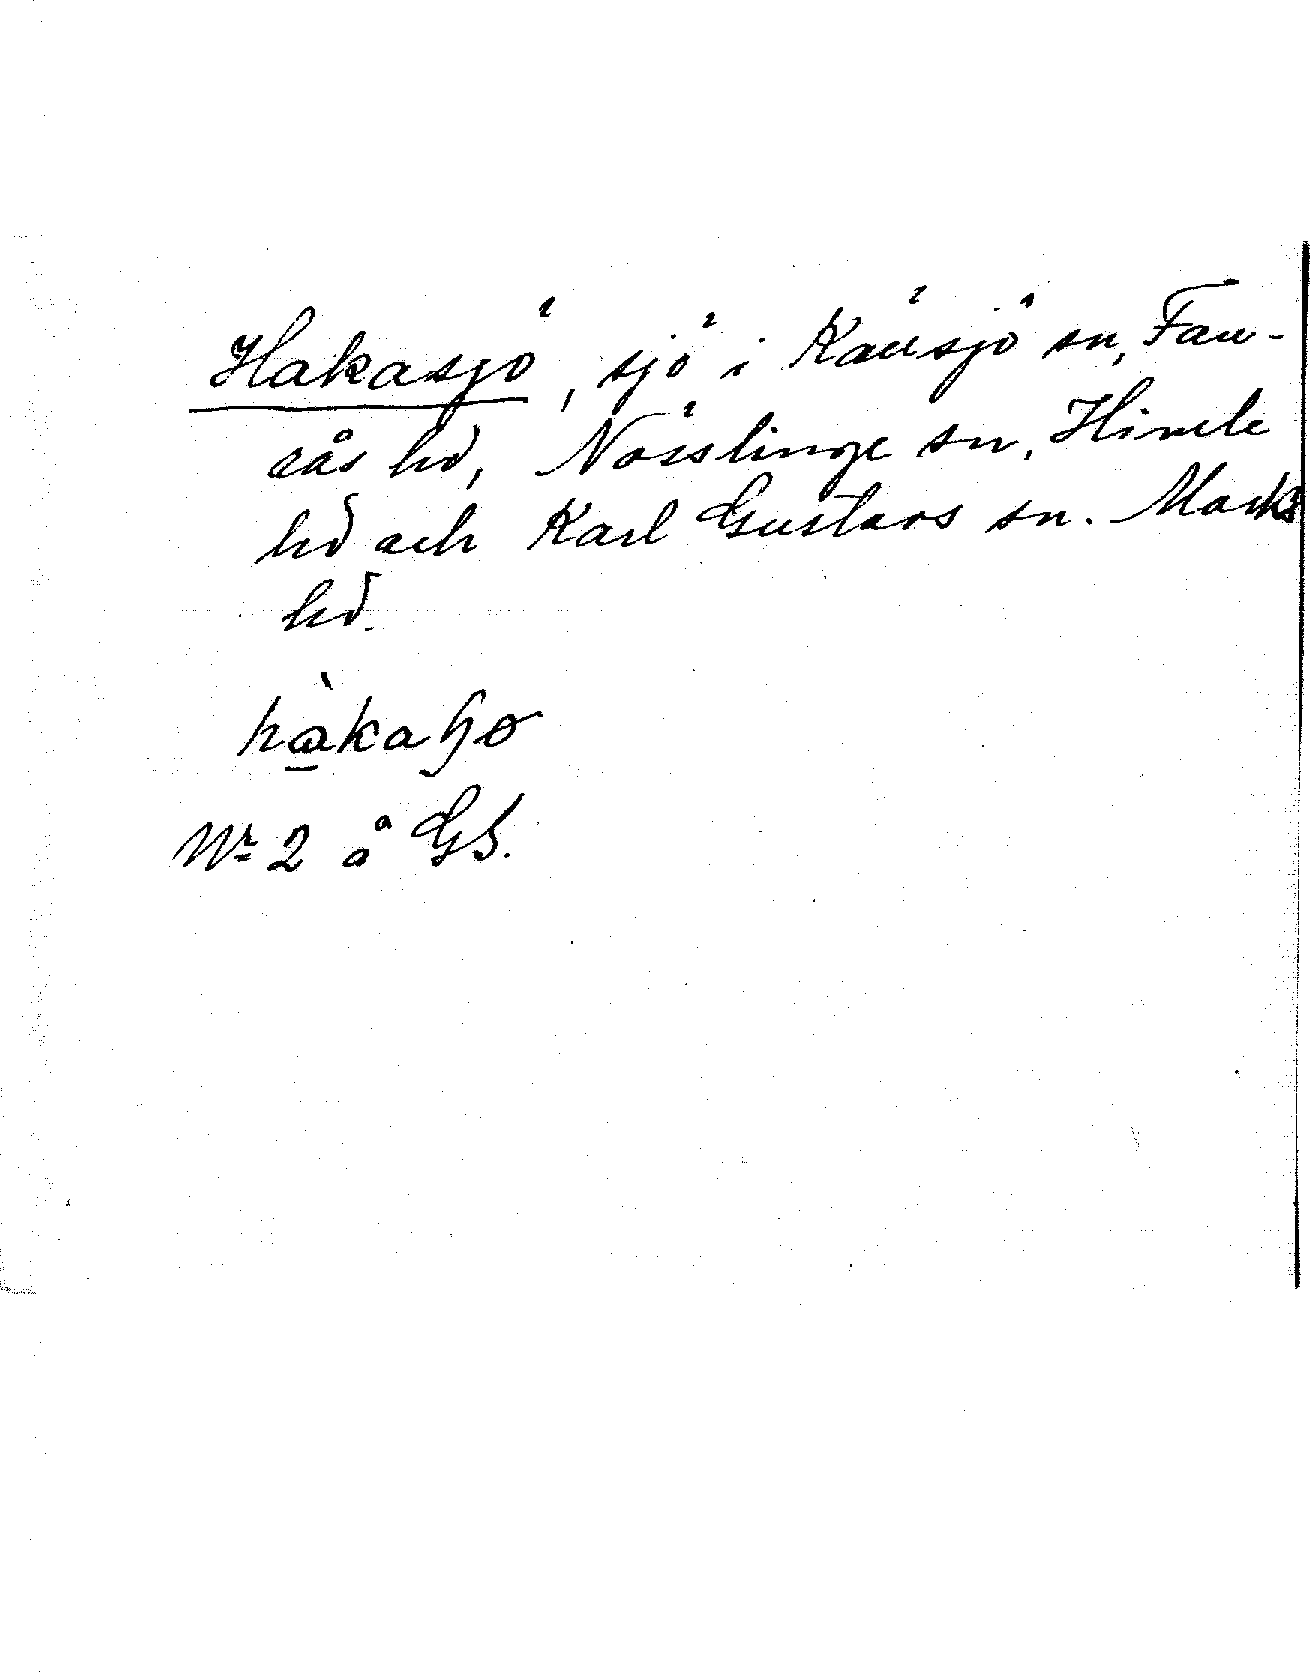 Hakasjö, sjö i Källsjö sn, Fau-
rås hd, Nösslinge sn, Himle
hd och Karl Gustavs sn. Marks
hd.
Nr 2 å GS.